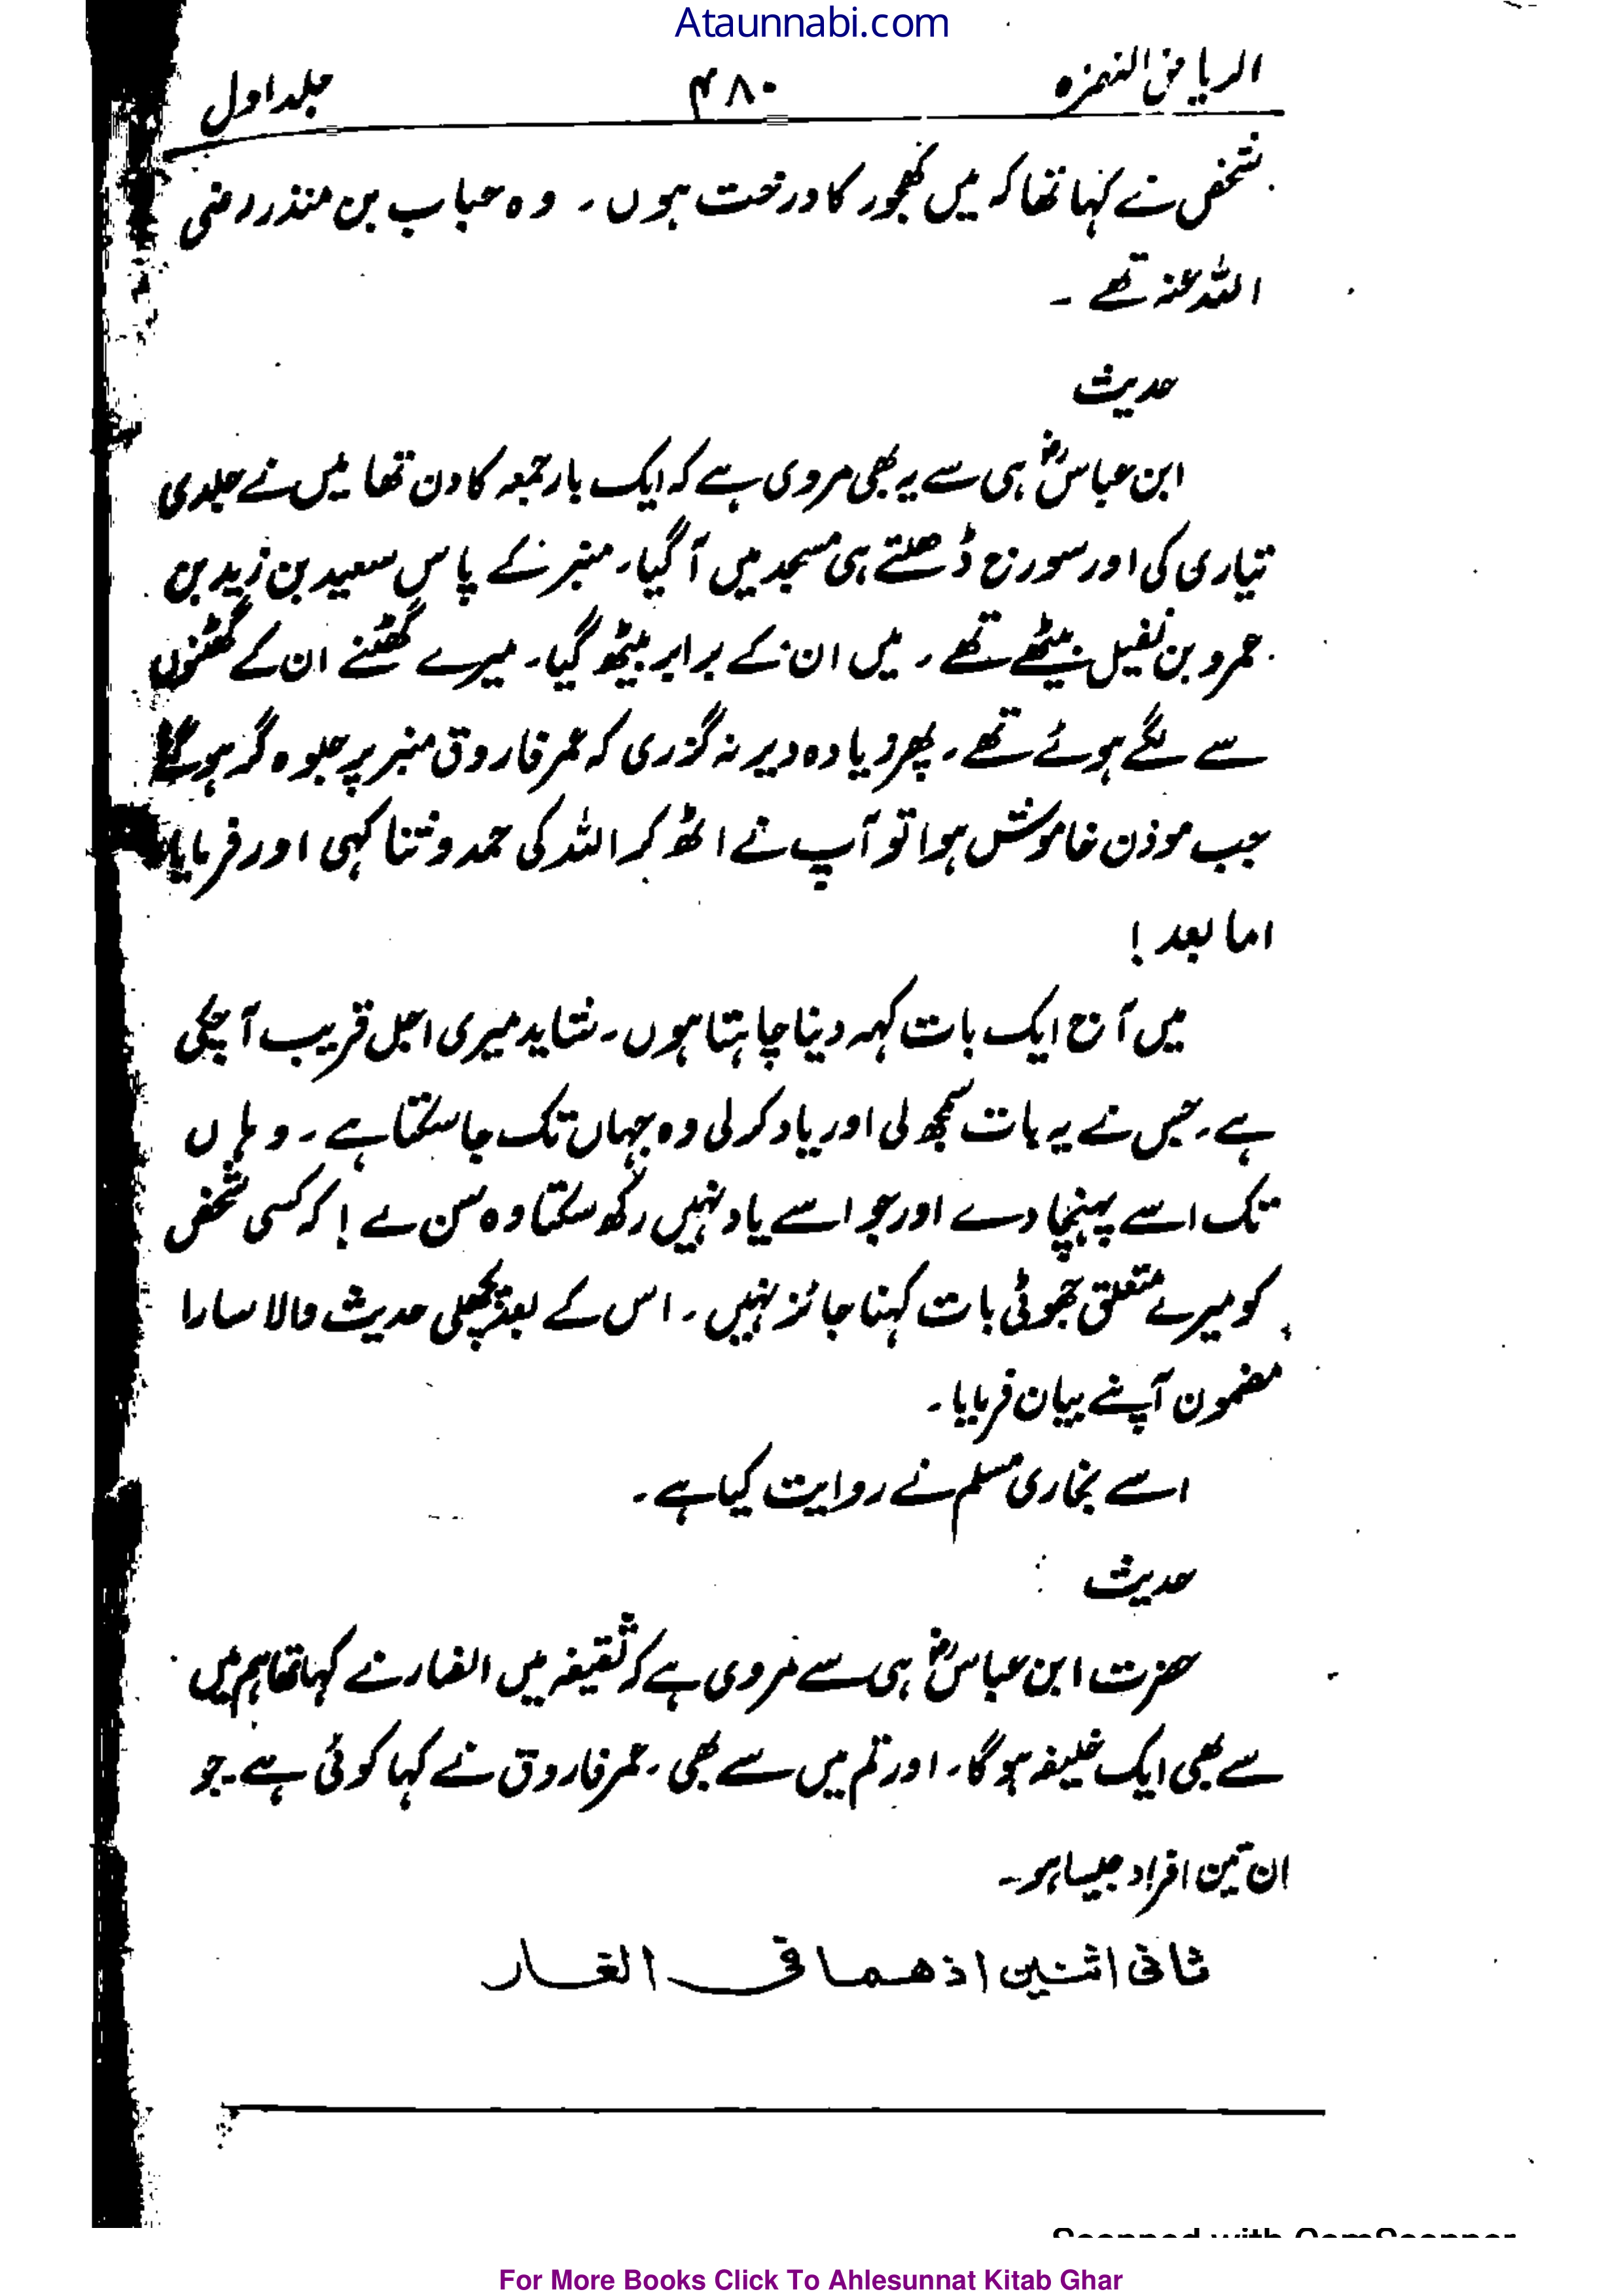 Ataunnabi.com
الریاض النضرہ ۴۸۰ جلد اول
شخص نے کہا تھا کہ میں کھجور کا درخت ہوں ۔ وہ حباب بن منذر رضی
اللہ عنہ تھے ۔
حدیث
ابن عباسؓ ہی سے یہ بھی مروی ہے کہ ایک بار جمعہ کا دن تھا میں نے جلدی
تیاری کی اور سورج ڈھلتے ہی مسجد میں آگیا۔ منبر کے پاس سعید بن زید بن
عمرو بن نفیل بیٹھے تھے ۔ میں ان کے برابر بیٹھ گیا۔ میرے گھٹنے ان کے گھٹنوں
سے لگے ہوئے تھے ۔ پھر زیادہ دیر نہ گزری کہ عمر فاروق منبر پر جلوہ گر ہو گئے
جب موذن خاموش ہوا تو آپ نے اٹھ کر اللہ کی حمد و ثنا کہی اور فرمایا
اما بعد !
میں آج ایک بات کہہ دینا چاہتا ہوں ۔ شاید میری اجل قریب آ چکی
ہے ۔ جس نے یہ بات سمجھ لی اور یاد کر لی وہ جہاں تک جا سکتا ہے ۔ وہاں
تک اسے پہنچا دے اور جو اسے یاد نہیں رکھ سکتا وہ سن لے ! کہ کسی شخص
کو میرے متعلق جھوٹی بات کہنا جائز نہیں ۔ اس کے بعد پچھلی حدیث والا سارا
مضمون آپ نے بیان فرمایا ۔
اسے بخاری مسلم نے روایت کیا ہے ۔
حدیث
حضرت ابن عباسؓ ہی سے مروی ہے کہ ثقیفہ میں انصار نے کہا تھا ہم میں
سے بھی ایک خلیفہ ہو گا ۔ اور تم میں سے بھی ۔ عمر فاروق نے کہا کوئی ہے جو
ان تین افراد جیسا ہو ۔
ثانی اثنین اذ هما فی الغار
Scanned with CamScanner
For More Books Click To Ahlesunnat Kitab Ghar